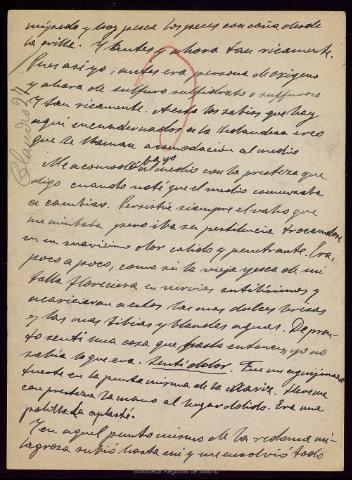 migrado y hoy pesca los peces con caña desde
la orilla. Y antes y ahora tan ricamente.
Pues así yo, antes era persona de oxígeno
y ahora de sulfuro sulfidrato o sulfuroso
Y tan ricamente. A esto los sabios que hay
aquí encuadernados a la holandesa creo
que le llaman acomodación al medio
Me acomodaba yo al medio con la presteza que
digo cuando noté que el medio comenzaba
a cambiar. Persistía siempre el vaho que
me nimbaba, pero iba su pestilencia trocándose
en un suavísimo olor cálido y penetrante. Era,
poco a poco, como si la vieja yesca de mi
talla floreciera en nervios sutilísimos y
acariciaran a estos las mas dulces brisas
y las mas tibias y blandas aguas. De pron-
to sentí una cosa que, hasta entonces, yo no
sabía lo que era. Sentí dolor. Fue un
fuerte en la punta misma de la nariz. Llevéme
con presteza la mano al lugar dolido. Era una
polilla. La aplasté.
Y en aquel punto mismo de la redoma mi-
lagrosa subió hasta mí y me envolvió todo
Claudio 27
Biblioteca Regional de Madrid